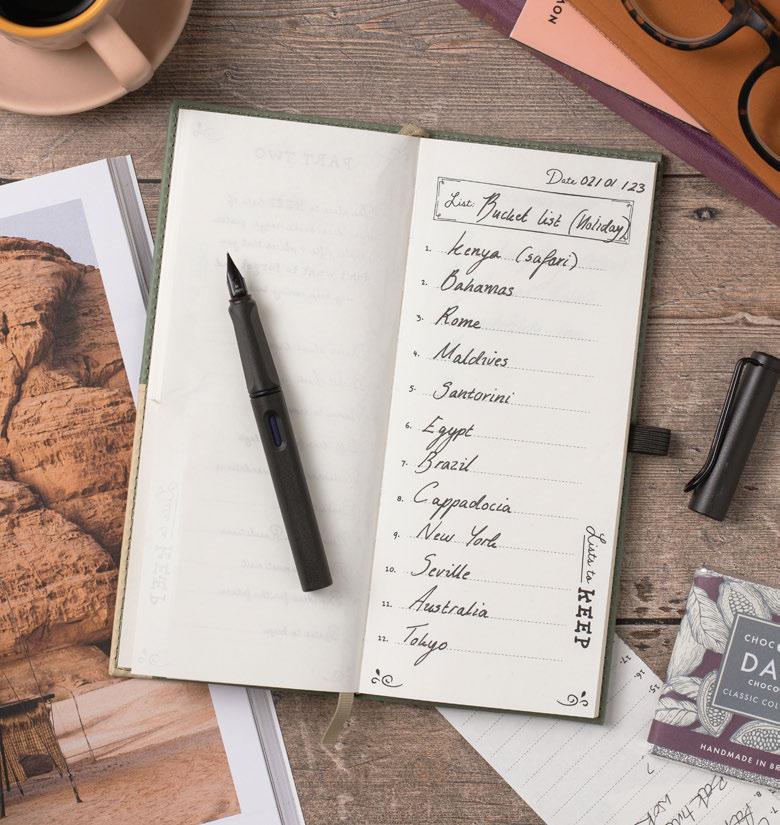 MON
PART TWO
Date 02/01/23
List: Bucket list (Holiday)
1. Kenya (safari)
2. Bahamas
3. Rome
4. Maldives
5. Santorini
6. Egypt
7. Brazil
8. Cappadocia
9. New York
10. Seville
11. Australia
12. Tokyo
Lists to KEEP
17.
16.
15.
8.
7.
CHOC
DA
CHOCO
CLASSIC COL
HANDMADE IN BR